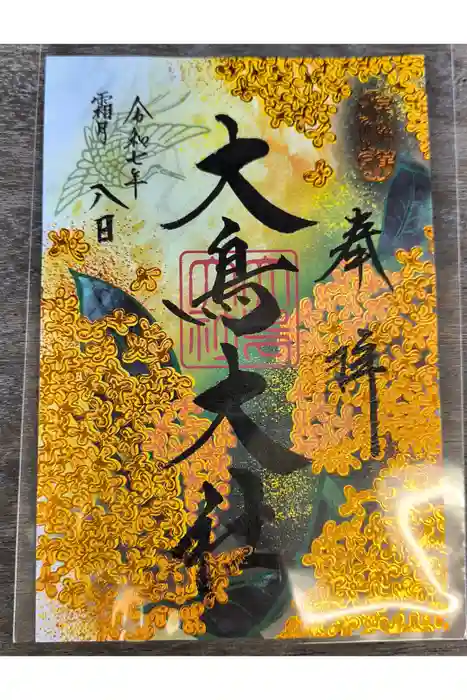 奉拝
大鳥大社
令和七年
霜月 八日